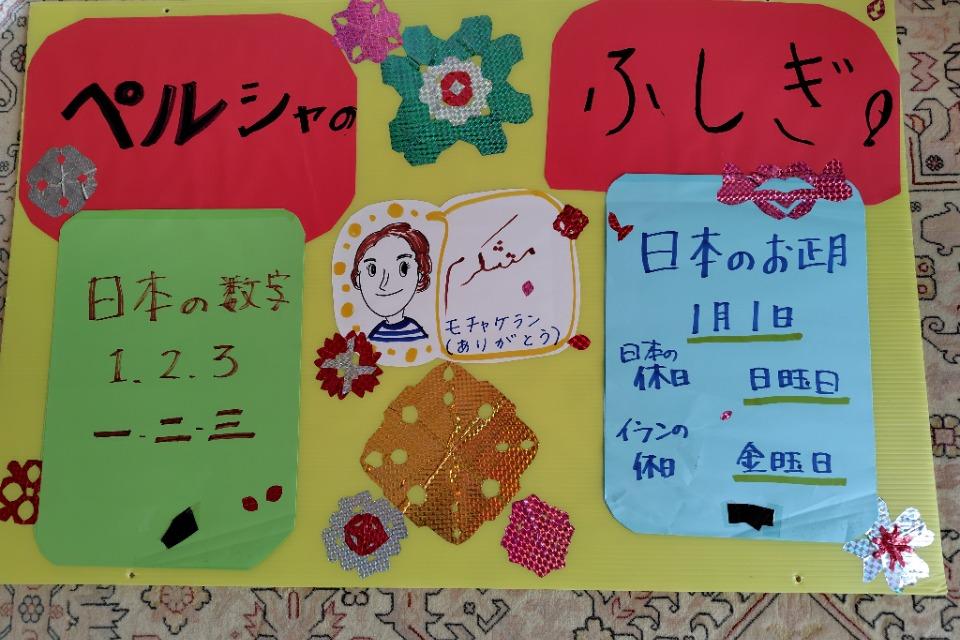 ペルシャの
ふしぎ!
日本の数字
1.2.3
一.二.三
متشکرم
モチャケラン
(ありがとう)
日本のお正月
1月1日
日本の
休日
日曜日
イランの
休日
金曜日